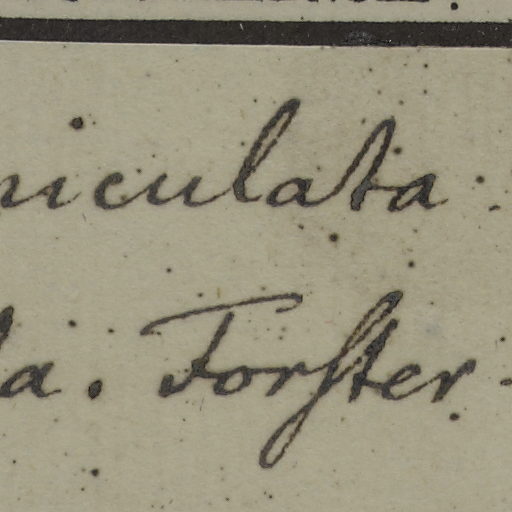 niculata
la. Forster